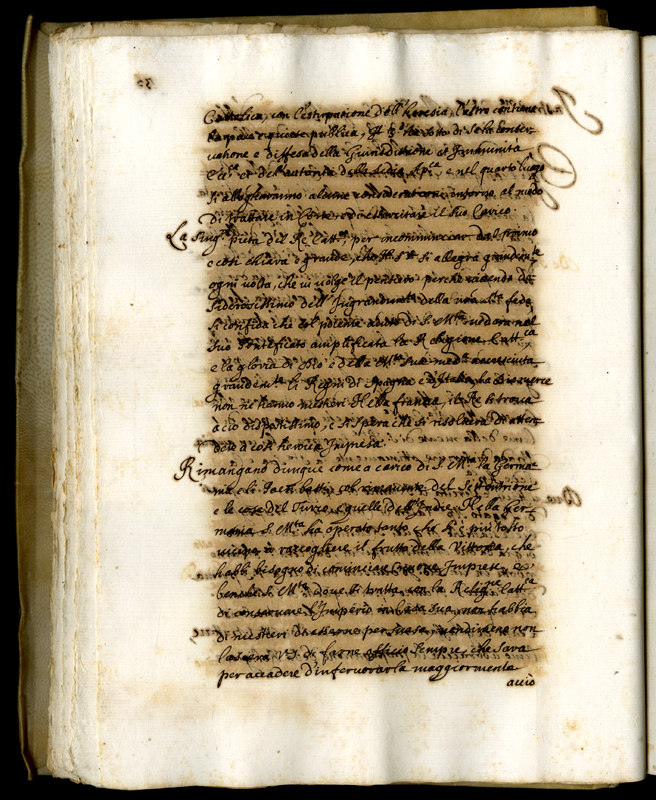 Cattolica, con l'estirpatione dell'heresia, l'altro
la pace e quiete publica, il 3.º di Sette
vatione e diffesa della Giurisdittione et Immunità
et dell'autorità della Sedia Ap.ca, e nel quarto luogo
si allogharanno alcune considerationi intorno al modo
di trattare in Corte, et essercitare il suo Carico.
La sing.re pietà del Re Catt.co, per incominciar dal primo
e così chiara e grande, che N. S.re si allegra grandem.te
ogni volta, che vi volge il pensiero perche vivendo de
siderosissimo dell'Ingrandim.to della fede
si confida che col aiuto di S. M.tà vedera nel
suo Pontificato amplificata la Religione Catt.ca
e la gloria di Dio e della M.tà Sua med.a accresciuta
grandem.te li Regni di Spagna et Italia,
non ne hanno mestieri Nella francia, il Re si trova
acciò dispostissimo, e si spera che si risolverà di atten
dere a così heroica Impresa.
Rimangano dunque come a carico di S. M.tà la Germa
nia e li Paesi bassi, col rimanente del Settentrione
e le cose del Turco, e quelle dell'Indie. Nella Ger
mania S. M.tà ha operato tanto che è più tosto
vicina à raccogliere il frutto della Vittoria, che
habbi bisogno di cominciar nuove Imprese, e
benche S. M.tà dove si tratta con la Relig.ne Catt.ca
di conservare l'Imperio in Casa sua, non habbia
di mestieri di esserne persuasa, nondimeno non
lasciarà V.S. di farne officio sempre, che sarà
per accadere d'infervorarla maggiormente
acciò